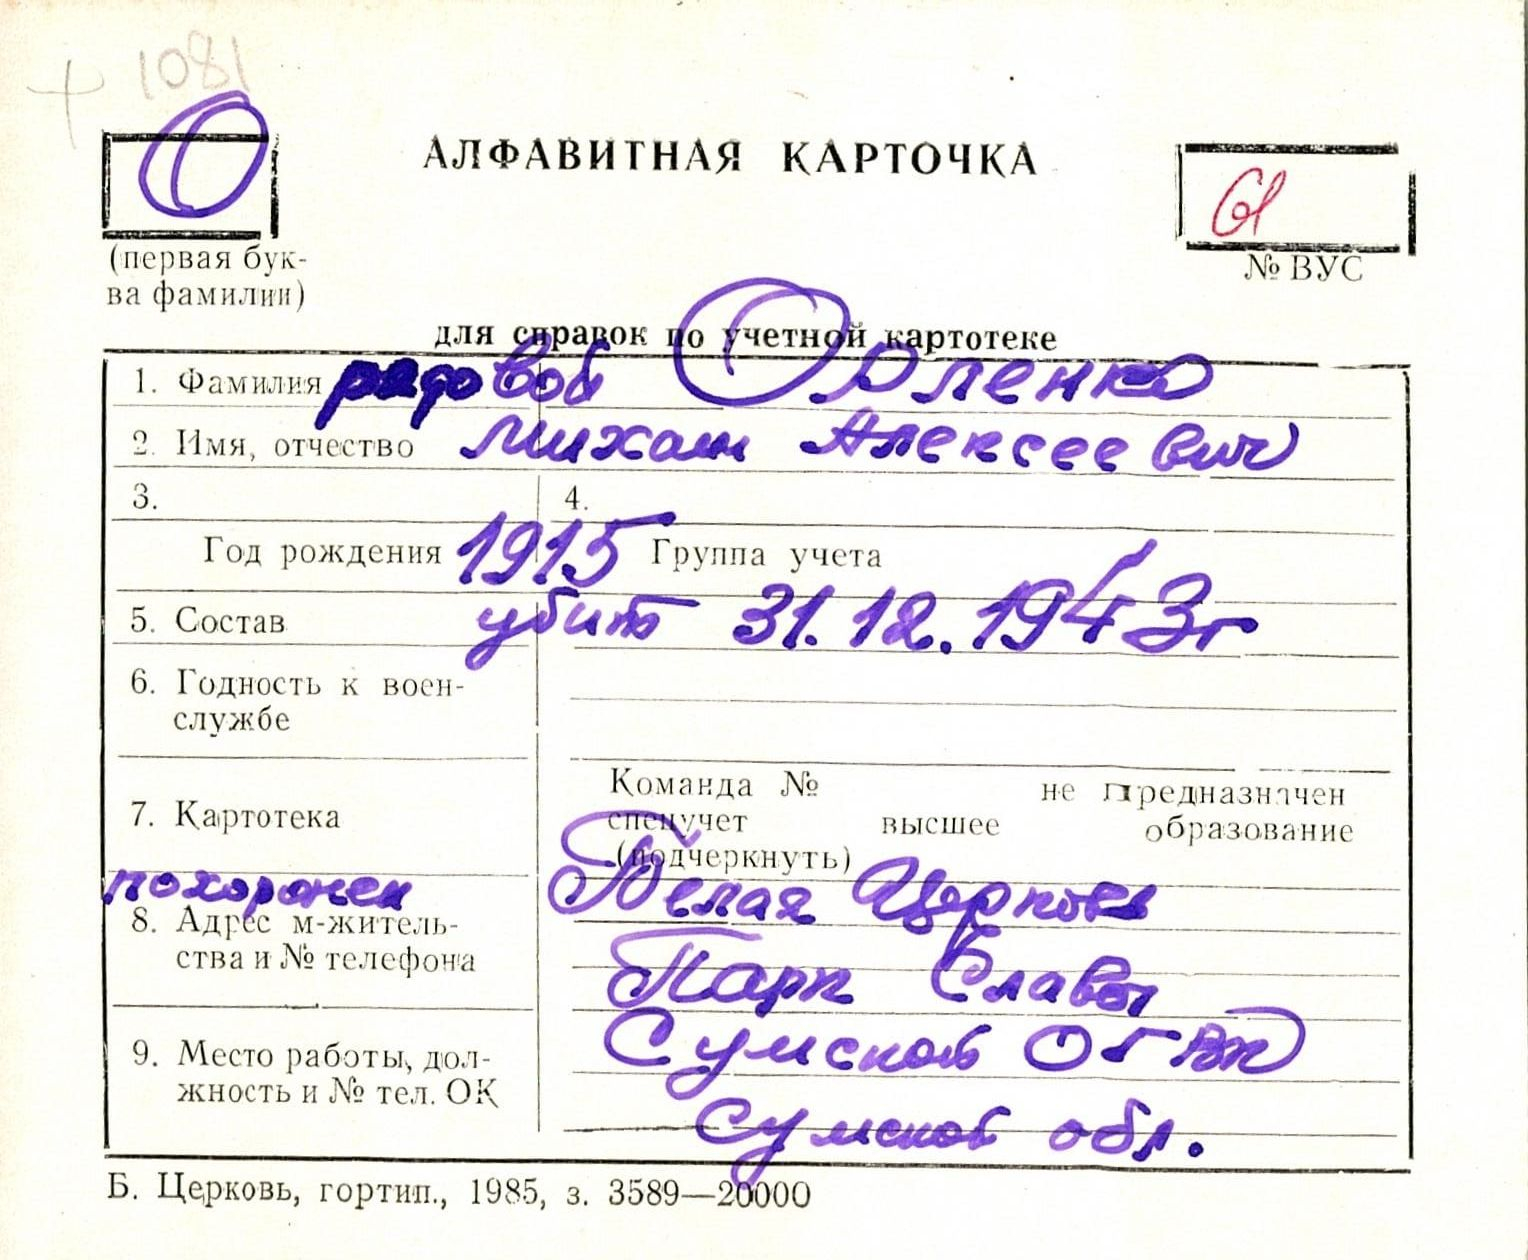 + 1081
О
АЛФАВИТНАЯ КАРТОЧКА
61
(первая бук-
ва фамилии)
№ ВУС
для справок по учетной картотеке
1. Фамилия рядовой Орленко
2. Имя, отчество Михаил Алексеевич
3.
4.
Год рождения 1915 Группа учета
5. Состав убит 31.12.1943г
6. Годность к воен-
службе
Команда № не предназначен
7. Картотека
спецучет высшее образование
(подчеркнуть)
похоронен Белая Церковь
8. Адрес м-житель-
ства и № телефона
Парк Славы
Сумской ОГВК
9. Место работы, дол-
жность и № тел. ОК
Сумской обл.
Б. Церковь, гортип., 1985, з. 3589—20000